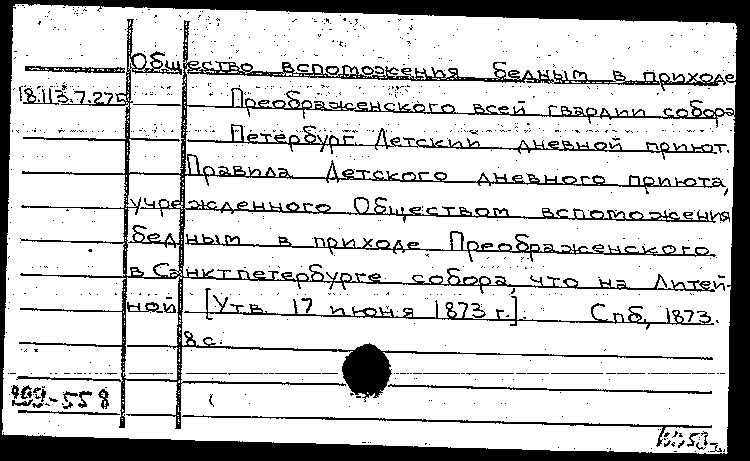 Общество вспоможения бедным в приходе
18.113.7.275 Преображенского всей гвардии собора
Петербург. Детский дневной приют.
Правила Детского дневного приюта,
учрежденного Обществом вспоможения
бедным в приходе Преображенского
в Санктпетербурге собора, что на Литей-
ной [Утв. 17 июня 1873 г.]. Спб, 1873.
8 с.
-558